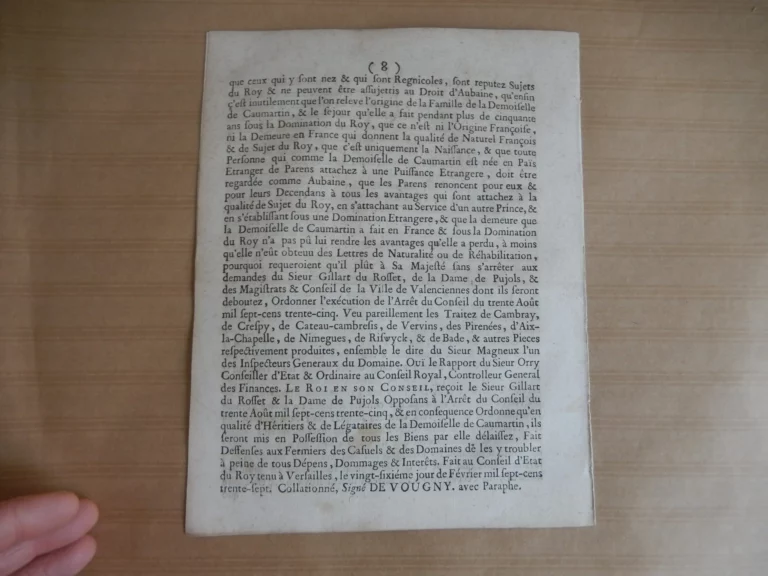 ( 8 )
que ceux qui y sont nez & qui sont Regnicoles, sont reputez Sujets
du Roy & ne peuvent être assujettis au Droit d'Aubaine, qu'enfin
c'est inutilement que l'on releve l'origine de la Famille de la Demoiselle
de Caumartin, & le séjour qu'elle a fait pendant plus de cinquante
ans sous la Domination du Roy, que ce n'est ni l'Origine Françoise,
ni la Demeure en France qui donnent la qualité de Naturel François
& de Sujet du Roy, que c'est uniquement la Naissance, & que toute
Personne qui comme la Demoiselle de Caumartin est née en Païs
Etranger de Parens attachez à une Puissance Etrangere, doit être
regardée comme Aubaine, que les Parens renoncent pour eux &
pour leurs Decendans à tous les avantages qui sont attachez à la
qualité de Sujet du Roy, en s'attachant au Service d'un autre Prince, &
en s'établissant sous une Domination Etrangere, & que la demeure que
la Demoiselle de Caumartin a fait en France & sous la Domination
du Roy n'a pas pû lui rendre les avantages qu'elle a perdu, à moins
qu'elle n'eût obtenu des Lettres de Naturalité ou de Réhabilitation,
pourquoi requeroient qu'il plût à Sa Majesté sans s'arrêter aux
demandes du Sieur Gillart du Rosset, de la Dame de Pujols, &
des Magistrats & Conseil de la Ville de Valenciennes dont ils seront
deboutez, Ordonner l'exécution de l'Arrêt du Conseil du trente Août
mil sept-cens trente-cinq. Veu pareillement les Traitez de Cambray,
de Crespy, de Cateau-cambresis, de Vervins, des Pirenées, d'Aix-
la-Chapelle, de Nimegues, de Riswyck, & de Bade, & autres Pieces
respectivement produites, ensemble le dire du Sieur Magneux l'un
des Inspecteurs Generaux du Domaine. Oui le Rapport du Sieur Orry
Conseiller d'Etat & Ordinaire au Conseil Royal, Controlleur General
des Finances. LE ROI EN SON CONSEIL, reçoit le Sieur Gillart
du Rosset & la Dame de Pujols Opposans à l'Arrêt du Conseil du
trente Août mil sept-cens trente-cinq, & en consequence Ordonne qu'en
qualité d'Héritiers & de Légataires de la Demoiselle de Caumartin, ils
seront mis en Possession de tous les Biens par elle délaissez, Fait
Deffenses aux Fermiers des Casuels & des Domaines de les y troubler
à peine de tous Dépens, Dommages & Interêts. Fait au Conseil d'Etat
du Roy tenu à Versailles, le vingt-sixiéme jour de Février mil sept-cens
trente-sept. Collationné, Signé DE VOUGNY. avec Paraphe.